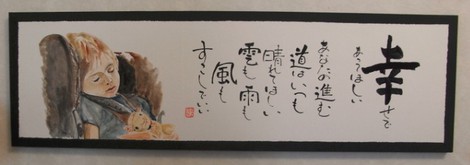 幸せで
あってほしい
あなたの進む
道はいつも
晴れてほしい
雲も雨も
風も
すこしでいい